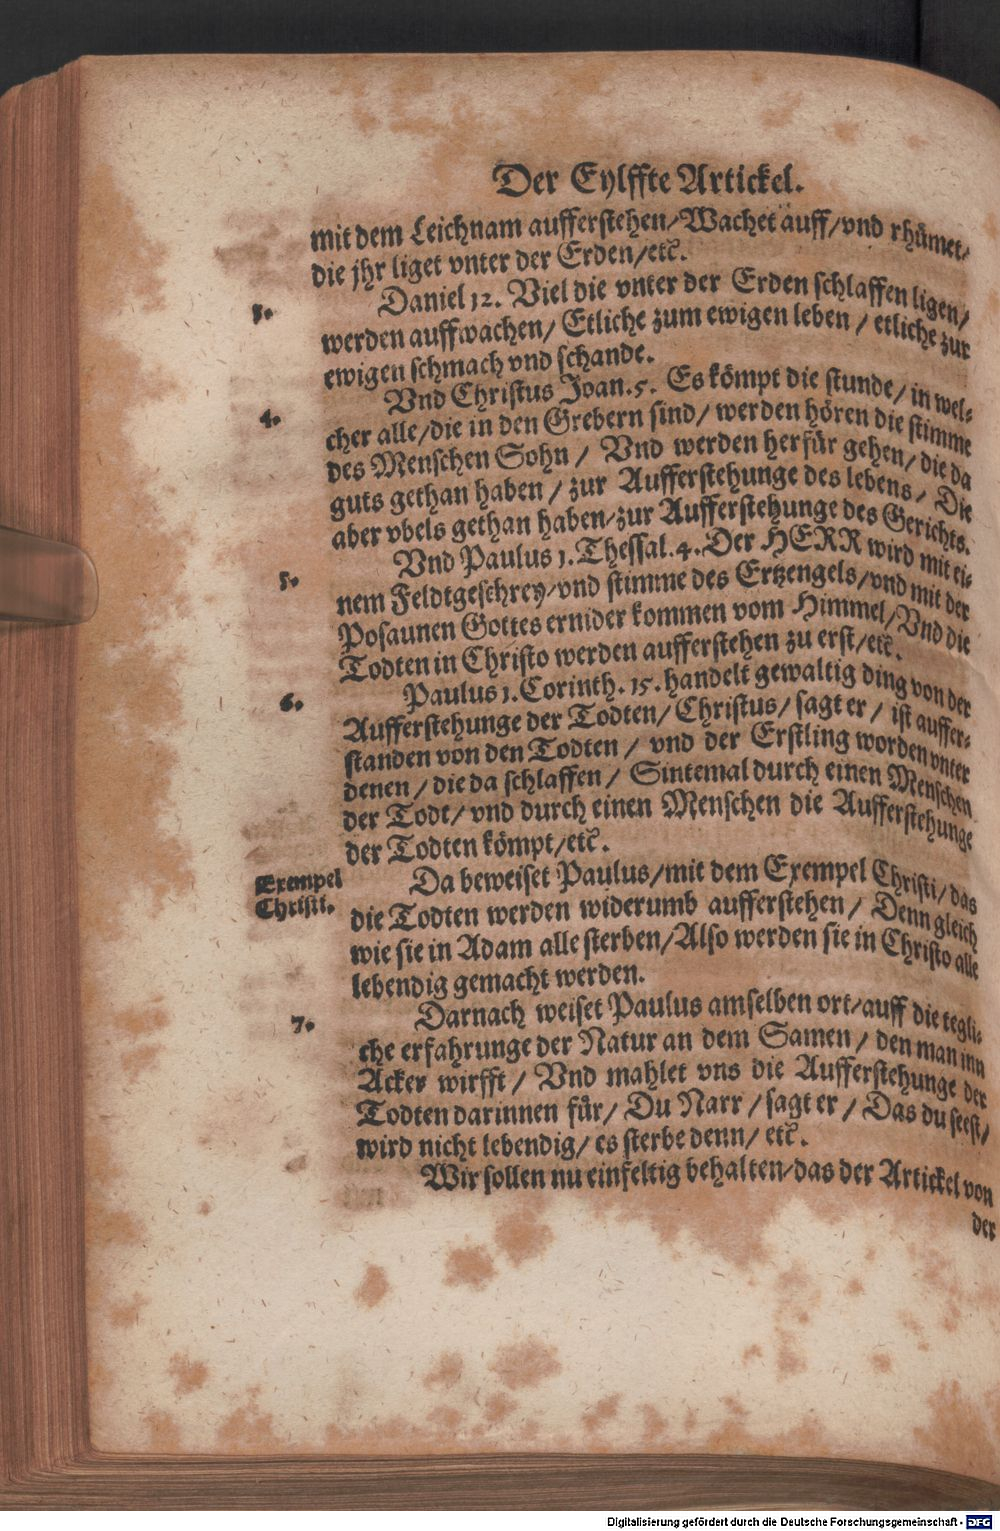 Der Eylffte Artickel.
mit dem Leichnam aufferstehen/Wachet auff/vnd rhümet/
die jhr liget vnter der Erden/etc.
3. Daniel 12. Viel die vnter der Erden schlaffen ligen/
werden auffwachen/ Etliche zum ewigen leben / etliche zur
ewigen schmach vnd schande.
4. Vnd Christus Joan. 5. Es kömpt die stunde/ in wel-
cher alle/die in den Grebern sind/ werden hören die stimme
des Menschen Sohn / Vnd werden herfür gehen/ die da
guts gethan haben / zur Aufferstehunge des lebens / Die
aber vbels gethan haben/zur Aufferstehunge des Gerichts.
5. Vnd Paulus 1. Thessal. 4. Der HERR wird mit ei-
nem Feldtgeschrey/vnd stimme des Ertzengels/vnd mit der
Posaunen Gottes ernider kommen vom Himmel/Vnd die
Todten in Christo werden aufferstehen zu erst/etc.
6. Paulus 1. Corinth. 15. handelt gewaltig ding von der
Aufferstehunge der Todten/ Christus/ sagt er / ist auffer-
standen von den Todten / vnd der Erstling worden vnter
denen / die da schlaffen / Sintemal durch einen Menschen
der Todt/ vnd durch einen Menschen die Aufferstehunge
der Todten kömpt/etc.
Exempel
Christi.
Da beweiset Paulus/mit dem Exempel Christi/das
die Todten werden widerumb aufferstehen / Denn gleich
wie sie in Adam alle sterben/Also werden sie in Christo alle
lebendig gemacht werden.
7. Darnach weiset Paulus amselben ort/auff die tegli-
che erfahrunge der Natur an dem Samen / den man inn
Acker wirfft / Vnd mahlet vns die Aufferstehunge der
Todten darinnen für/ Du Narr / sagt er / Das du seest/
wird nicht lebendig/ es sterbe denn/ etc.
Wir sollen nu einfeltig behalten/das der Artickel von
der
Digitalisierung gefördert durch die Deutsche Forschungsgemeinschaft - DFG